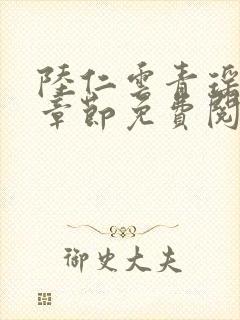 陸仁雲青瑶
章節免費閱
御史大夫